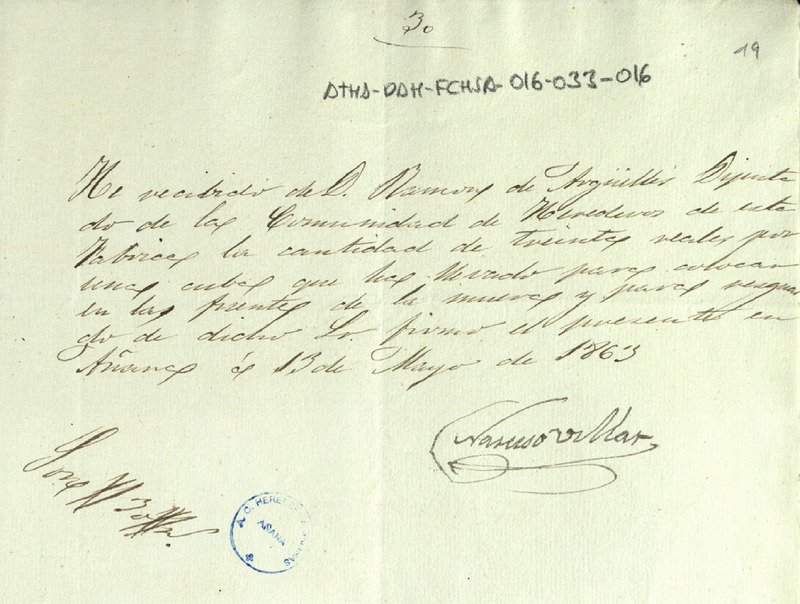 30
19
ATHA-DAH-FCHSA-016-033-016
He recibido de D. Ramon de Argüelles Diputa
do de la Comunidad de Herederos de esta
Fabrica la cantidad de treinta reales por
una cuba que ha llevado para colocar
en la fuente de la muera y para resguar
do de dicho Sr. firmo el presente en
Añana á 13 de Mayo de 1863
Narciso Villar
Son 30
A. C. HERE
AÑANA